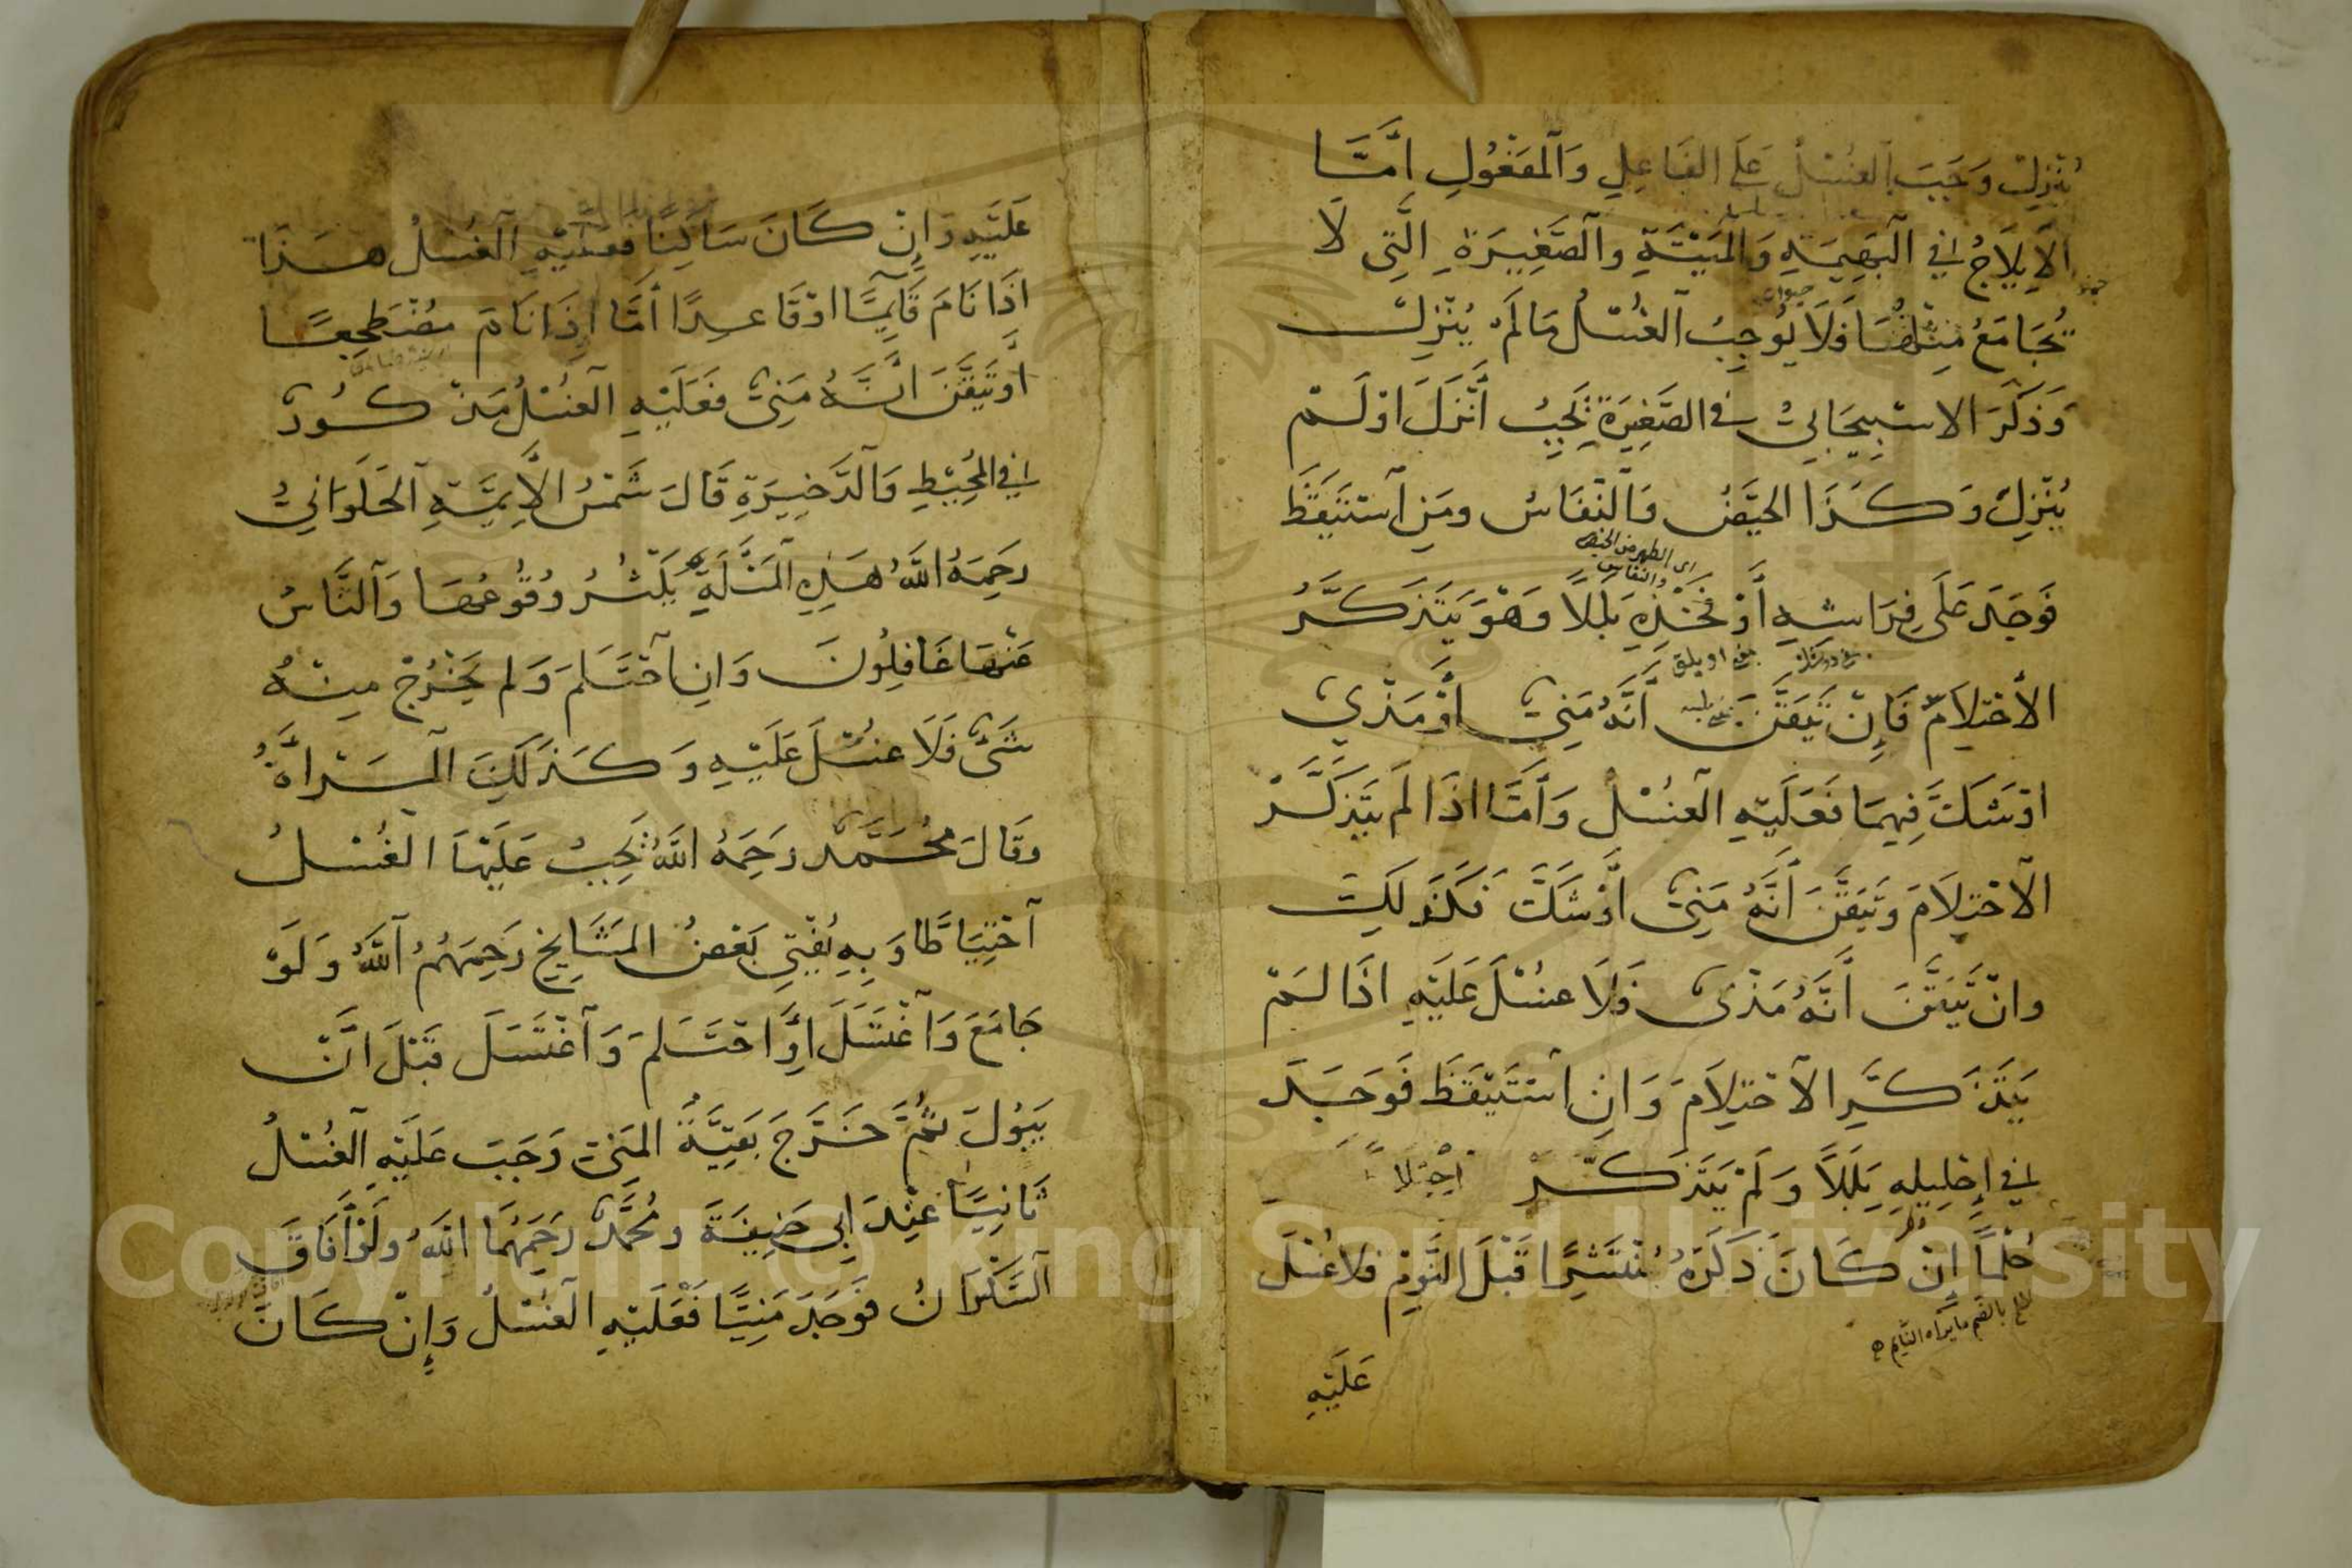 يُنْزِلْ وَجَبَ الغُسْلُ عَلَى الفَاعِلِ وَالمَفْعُولِ اَمَّا
الاِيلَاجُ فِي البَهِيمَةِ وَالمَيْتَةِ والصَّغِيرَةِ الَّتِي لَا
حيوان
تُجَامَعُ مِثْلُهَا فَلَا يُوجِبُ الغُسْلُ مَا لَمْ يُنْزِلْ
وَذَكَرَ الاسْبِيجَابِيُّ في الصَّغِيرَةِ يَجِبُ اَنْزَلَ اَوْ لَمْ
يُنْزِلْ وَكَذَا الحَيْضُ وَالنِّفَاسُ ومَنِ اسْتَيْقَظَ
اى الطهر من الحيض والنفاس
فَوَجَدَ عَلَى فِرَاشِهِ أَوْ فَخْذِهِ بَلَلًا وَهُوَ يَتَذَكَّرُ
الاحْتِلَامَ فَإِنْ تَيَقَّنَ اَنَّهُ مَنِيٌّ اَوْ مَذْيٌ
اوْ شَكَّ فِيهِمَا فَعَلَيْهِ الغُسْلُ وَأَمَّا اذَا لَمْ يَتَذَكَّرْ
الاحْتِلَامَ وَتَيَقَّنَ اَنَّهُ مَنِيٌّ اَوْ شَكَّ فَكَذَلِكَ
وانْ تَيَقَّنَ اَنَّهُ مَذْىٌ فَلَا غُسْلَ عَلَيْهِ اذَا لَمْ
يَتَذَكَّرِ الاحْتِلَامَ وَانِ اسْتَيْقَظَ فَوَجَدَ
فِي إِحْلِيلِهِ بَلَلًا وَلَمْ يَتَذَكَّرْ
حُلْمًا إِنْ كَانَ ذَكَرُهُ مُنْتَشِرًا قَبْلَ النَّوْمِ فلا غُسْلَ
حلم بالضم ما يراه النايم
عَلَيْهِ
عَلَيْهِ وَإِنْ كَانَ سَاكِنًا فَعَلَيْهِ الغُسْلُ هَذَا
اذَا نَامَ قَايِمًا اوْ قَاعِدًا اَمَّا اِذَا نَامَ مُضْطَجِعًا
أَوْ تَيَقَّنَ اَنَّهُ مَنِىٌّ فَعَلَيْهِ الغُسْلُ مَذْكُورٌ
فِي المُحِيْطِ وَالذَّخِيرَةِ قَالَ شَمْسُ الاَيِمَّةِ الحَلَوَانِيُّ
رَحِمَهُ اللَّهُ هَذِهِ المَسْئَلَةُ يَكْثُرُ وُقُوعُهَا وَالنَّاسُ
عَنْهَا غَافِلُونَ وَانِ احْتَلَمَ وَلَم يَخْرُجْ مِنْهُ
شَىْءٌ فَلَا غُسْلَ عَلَيْهِ وَكَذَلِكَ المَرْاَةُ
وقَالَ مُحَمَّدٌ رَحِمَهُ اللَّهُ يَجِبُ عَلَيْهَا الغُسْلُ
احْتِيَاطًا وَبِهِ يُفْتِي بَعْضُ المَشَايِخِ رَحِمَهُمُ اللَّهُ وَلَوْ
جَامَعَ وَاغْتَسَلَ اَوِ احْتَلَمَ وَاغْتَسَلَ قَبْلَ اَنْ
يَبُولَ ثُمَّ خَرَجَ بَقِيَّةُ المَنِيِّ وَجَبَ عَلَيْهِ الغُسْلُ
ثَانِيًا عِنْدَ اَبِي حَنِيفَةَ ومُحَمَّدٍ رَحِمَهُمَا اللَّهُ ولَوْ اَفَاقَ
السَّكْرَانُ فَوَجَدَ مَنِيًّا فَعَلَيْهِ الغُسْلُ وَإِنْ كَانَ
Copyright © King Saud University